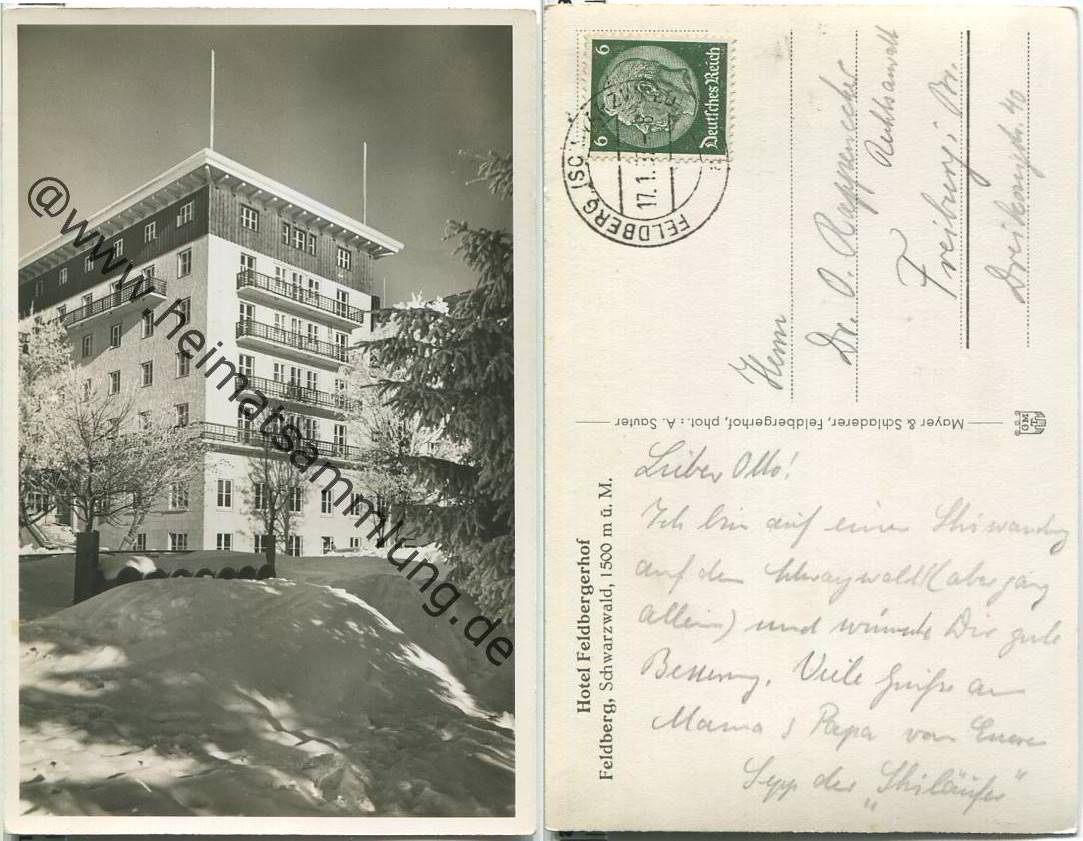 @www.heimatsammlung.de
6
6
Deutsches Reich
FELDBERG (SCHWARZW)
17.1.
Herrn
Dr. O. Rappenecker
Rechtsanwalt
Freiburg i. Br.
Dreikönigstr. 40
Mayer & Schladerer, Feldbergerhof, phot.: A. Sauter
GM
Hotel Feldbergerhof
Feldberg, Schwarzwald, 1500 m ü. M.
Lieber Otto!
Ich bin auf einer Skiwanderung
auf dem Schwarzwald (aber ganz
allein) und wünsche Dir gute
Besserung. Viele Grüße an
Mama & Papa von Eurem
Sepp der "Skiläufer"